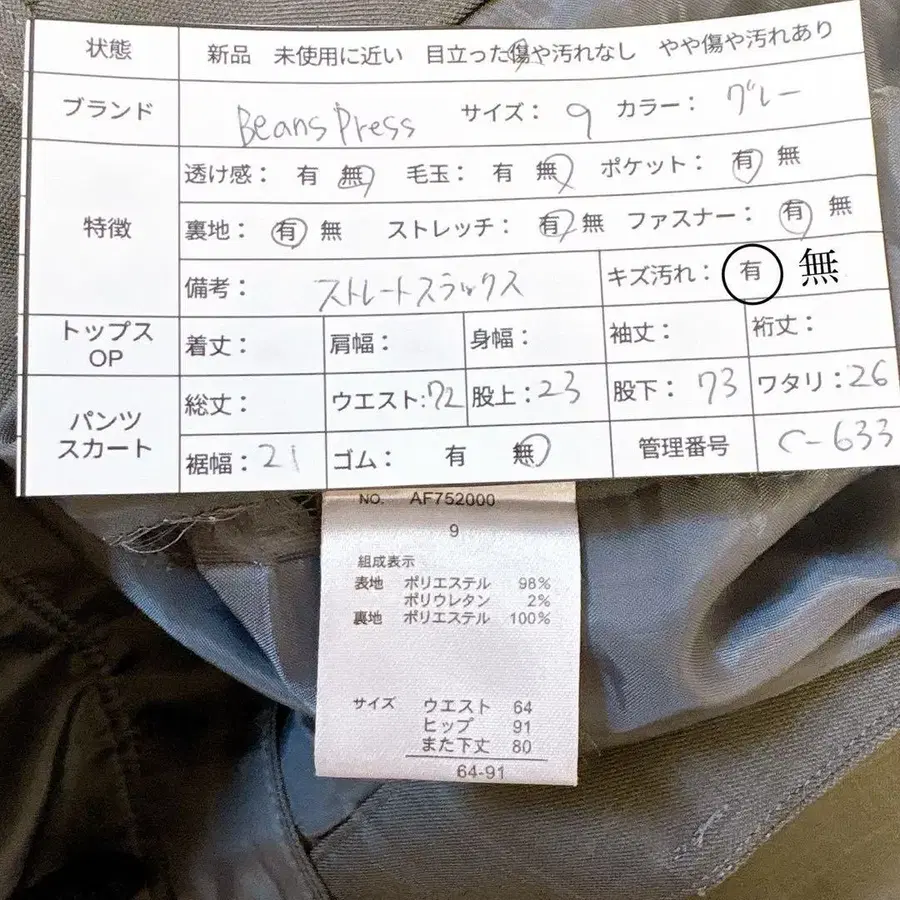 状態 新品 未使用に近い 目立った傷や汚れなし やや傷や汚れあり
ブランド Beans Press サイズ: 9 カラー: グレー
特徴 透け感: 有 無 毛玉: 有 無 ポケット: 有 無
裏地: 有 無 ストレッチ: 有 無 ファスナー: 有 無
備考: ストレートスラックス キズ汚れ: 有 無
トップス OP 着丈: 肩幅: 身幅: 袖丈: 裄丈:
パンツ スカート 総丈: ウエスト:72 股上:23 股下: 73 ワタリ:26
裾幅: 21 ゴム: 有 無 管理番号 C-633
NO. AF752000
9
組成表示
表地 ポリエステル 98%
ポリウレタン 2%
裏地 ポリエステル 100%
サイズ ウエスト 64
ヒップ 91
また下丈 80
64-91